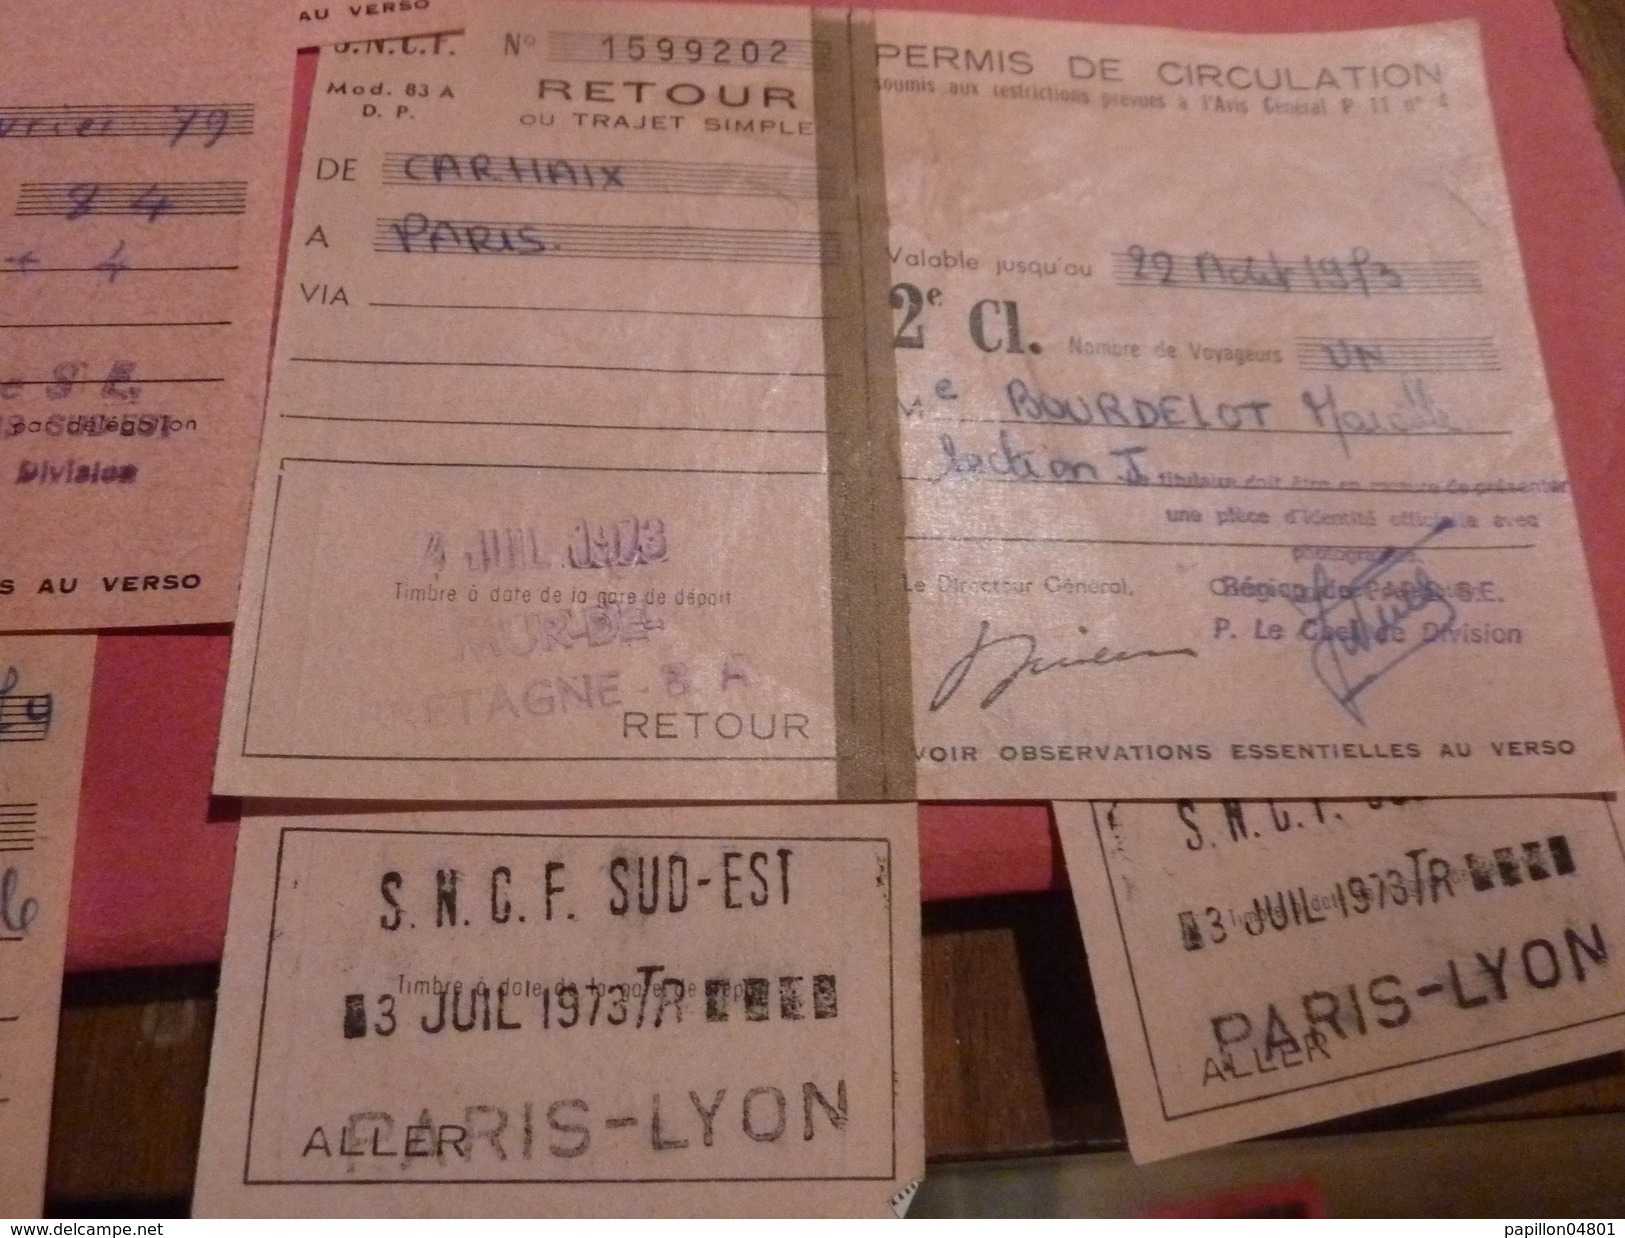 AU VERSO
S.N.C.F. N° 1599202
Mod. 83 A
D. P.
RETOUR
OU TRAJET SIMPLE
DE CARHAIX
A PARIS.
VIA
4 JUIL 1973
Timbre à date de la gare de départ
MUR-DE-
BRETAGNE - B. R
RETOUR
PERMIS DE CIRCULATION
soumis aux restrictions prévues à l'Avis Général P 11 n° 4
Valable jusqu'au 22 Août 1973
2e Cl. Nombre de Voyageurs UN
Me BOURDELOT Marcelle
Section I
titulaire doit être en mesure de présenter
une pièce d'identité officielle avec
photographie.
Le Directeur Général,
Région de PARIS S.E.
P. Le Chef de Division
VOIR OBSERVATIONS ESSENTIELLES AU VERSO
vrier 79
84
+ 4
S E.
SUD-EST
par délégation
Division
S AU VERSO
S.N.C.F. SUD-EST
Timbre à date de la gare de
3 JUIL 1973 TR
PARIS-LYON
ALLER
S.N.C.F.
3 JUIL 1973 TR
PARIS-LYON
ALLER
www.delcampe.net
papillon04801